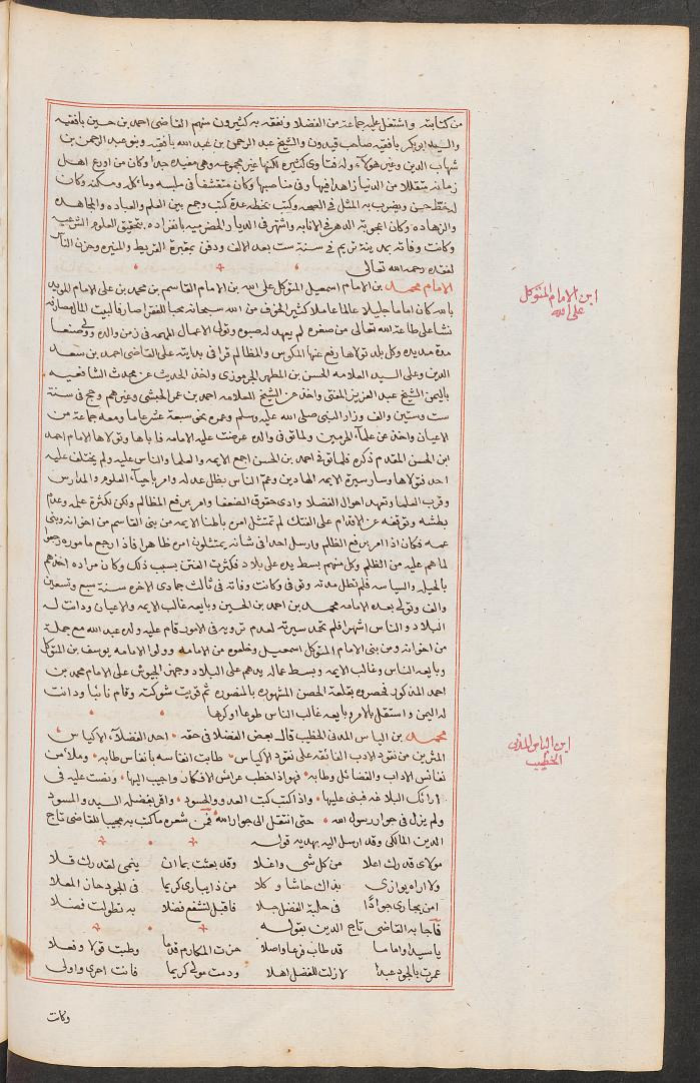 من كتابته واشتغل عليه جماعة من الفضلا وتفقه به كثيرون منهم القاضى احمد بن حسين بافقيه
والسيد ابو بكر بافقيه صاحب قيدون والشيخ عبد الرحمن بن عبد الله بافقيه وبنو عبد الرحمن بن
شهاب الدين وغير هولاء وله فتاوى كثيره لكنها غير مجموعه وهى مفيده جدا وكان من اورع اهل
زمانه متقللا من الدنيا زاهدا فيها وفى مناصبها وكان متقشفا فى ملبسه وماكله ومسكنه وكان
له خط حسن ويضرب به المثل فى الصحه وكتب بخطه عدة كتب وجمع بين العلم والعباده والمجاهده
والزهاده وكان اعجوبة الدهر فى الانابه واشتهر فى الديار الحضرميه بانفراده بتحقيق العلوم الشرعيه
وكانت وفاته بمدينة تريم فى سنة ست بعد الالف ودفن بمقبرة الفريط والمنبره وحزن الناس
لفقده رحمه الله تعالى
الامام محمد بن الامام اسمعيل المتوكل على الله بن الامام القاسم بن محمد بن على الامام المويد
بالله كان اماما جليلا عالما عاملا كثير الخوف من الله سبحانه محبا للفقرا صارفا لبيت المال مصارفه
نشا على طاعة الله تعالى من صغره لم يعهد له صبوه وتولى الاعمال المهمه فى زمن والده وولى صنعا
مدة مديده وكل بلد تولاها رفع عنها المكوس والمظالم قرا فى بدايته على القاضى احمد بن سعد
الدين وعلى السيد العلامه الحسن بن المطهر الجرموزى واخذ الحديث عن محدث الشافعيه
باليمن الشيخ عبد العزيز المفتى واخذ عن الشيخ العلامه احمد بن عمر الحبشى وغيرهم وحج فى سنة
ست وستين والف وزار النبى صلى الله عليه وسلم وعمره نحو سبعة عشر عاما ومعه جماعة من
الاعيان واخذ عن علماء الحرمين ولما توفى والده عرضت عليه الامامه فاباها وتولاها الامام احمد
ابن الحسن المقدم ذكره فلما توفى احمد بن الحسن اجمع الايمه والعلما والناس عليه ولم يختلف عليه
احد فتولاها وسار سيرة الايمه الهادين وعم الناس بظل عدله وامر باحياء العلوم والمدارس
وقرب العلما وتعهد احوال الفضلا وادى حقوق الضعفا وامر برفع المظالم ولكن لكثرة حلمه وعدم
بطشه وتوقفه عن الاقدام على الفتك لم تمتثل امره باطنا الايمه من بنى القاسم من اخوانه وبنى
عمه فكان اذا امر برفع الظالم وارسل احدا فى شانه يمتثلون امره ظاهرا فاذا رجع ماموره رجعوا
لما هم عليه من الظلم وكل منهم بسط يده على بلاد فكثرت الفتن بسبب ذلك وكان مراده اخذهم
بالحيله والسياسه فلم تطل مدته وتوفى وكانت وفاته فى ثالث جمادى الاخره سنة سبع وتسعين
والف وتولى بعده الامامه محمد بن احمد بن الحسين وبايعه غالب الايمه والاعيان ودانت له
البلاد والناس اشهرا فلم تحمد سيرته لعدم ترويه فى الامور فقام عليه ولده عبد الله مع جملة
من اخوانه ومن بنى الامام المتوكل اسمعيل وخلعوه من الامامه وولوا الامامه يوسف بن المتوكل
وبايعه الناس وغالب الايمه وبسط عماله يدهم على البلاد وجهز الجيوش على الامام محمد بن
احمد المذكور فحصروه بقلعة الحصن المشهوره بالمنصوره ثم قويت شوكته وقام ثانيا ودانت
له اليمن واستقل بالامر وبايعه غالب الناس طوعا او كرها
محمد بن الياس المدنى الخطيب قال بعض الفضلا فى حقه احد الفضلاء الاكياس
المثرين من نقود الادب الفائقه على نقود الاكياس طابت انفاسه بانفاس طابه وملا من
نفائس الاداب والفضائل وطابه فهو اذا خطب عرائس الافكار واجيب اليها ونصت عليه فى
ارائك البلاغه فبنى عليها واذا كتب كبت العدو والحسود واقر بفضله السيد والمسود
ولم يزل فى جوار رسول الله حتى انتقل الى جوار الله فمن شعره ما كتب به مجيبا للقاضى تاج
الدين المالكى وقد ارسل اليه بهديه قوله
مولاى قدرك اعلا من كل شى واغلا وقد بعثت بما ان ينمى لقدرك قلا
ولا اراه يوازى بذاك حاشا وكلا من ذا يبارى كريما فى الجود حاز المعلا
امن يجارى جوادا فى حلبة الفضل جلا فاقبل لتشفع فضلا به تطولت فضلا
فاجابه القاضى تاج الدين بقوله
يا سيدا واماما قد طاب فرعا واصلا حزت المكارم قدما وطبت قولا وفعلا
غمرت بالجود عبدا لا زلت للفضل اهلا ودمت مولى كريما فانت احرى واولى
وكانت
ابن الامام المتوكل
على الله
ابن الياس المدنى
الخطيب